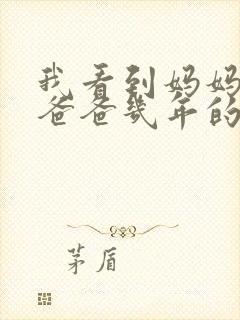 我看到妈妈
爸爸几年的
茅盾